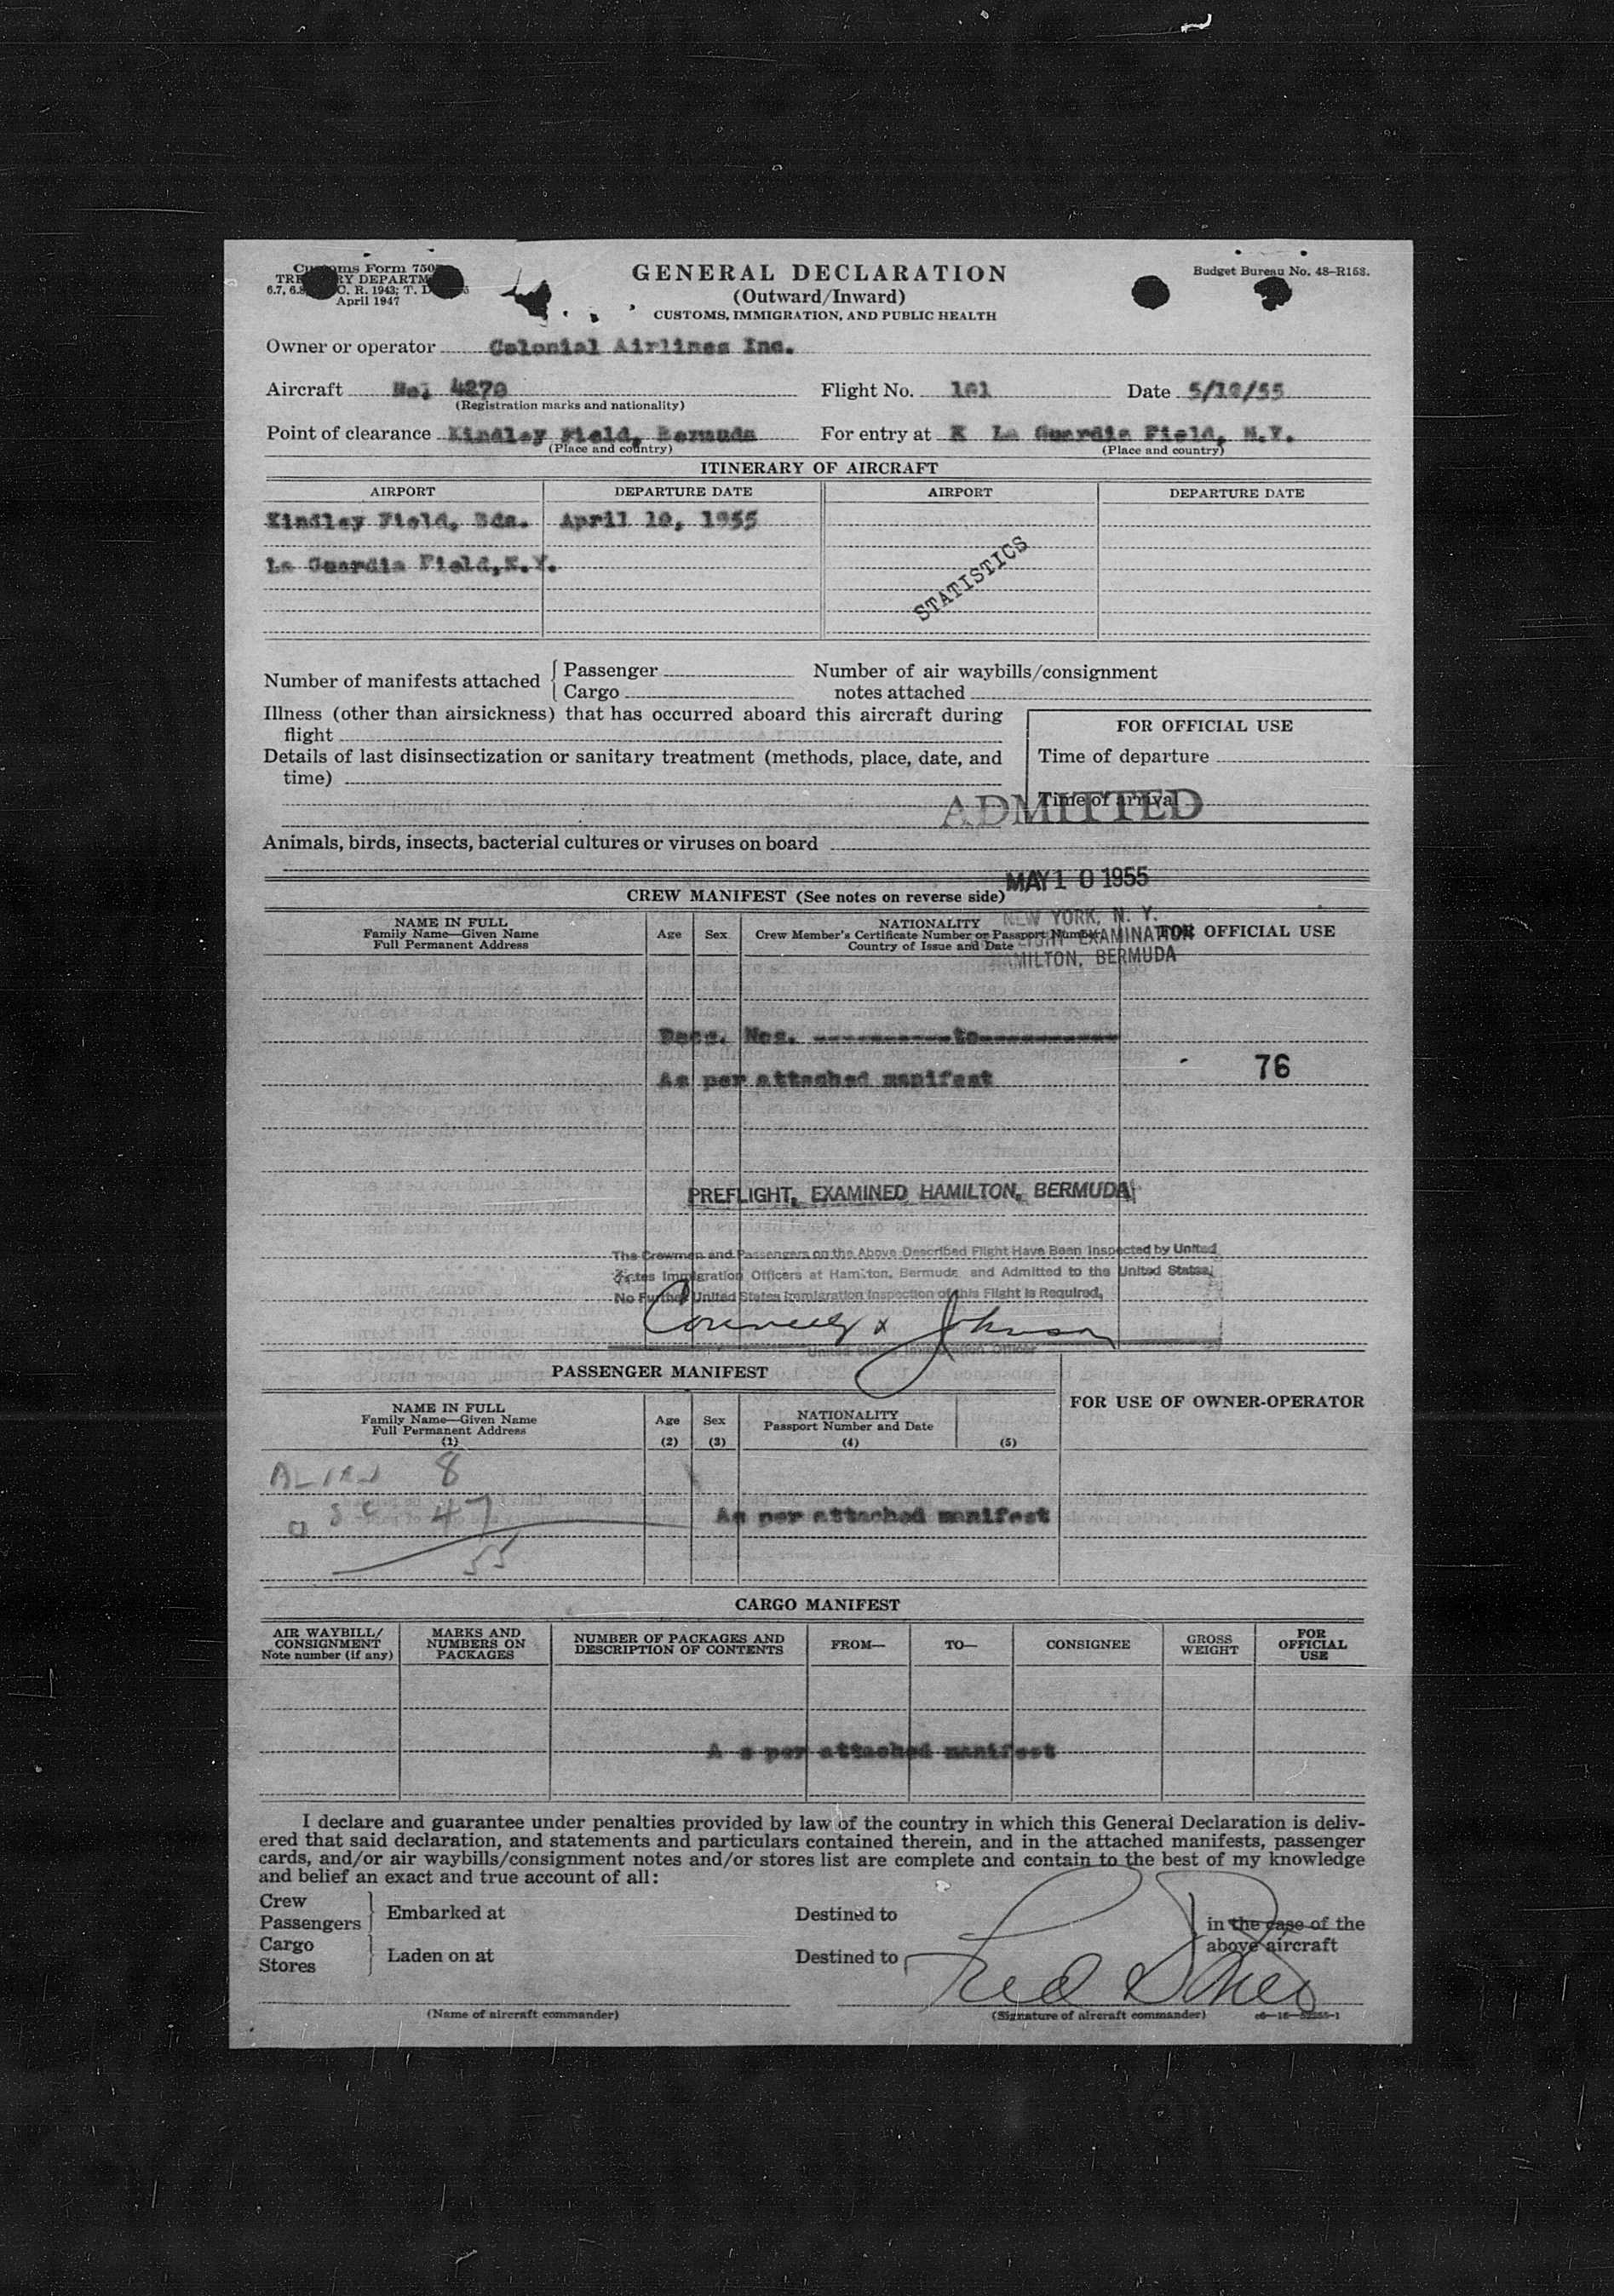 GENERAL DECLARATION
(Outward/Inward)
CUSTOMS, IMMIGRATION, AND PUBLIC HEALTH
Customs Form 750
April 1947
Budget Bureau No. 48-R168.
Owner or operator Colonial Airlines Inc.
Aircraft No. 4270 Flight No. 101 Date 5/10/55
(Registration marks and nationality)
Point of clearance Kindley Field, Bermuda For entry at K La Guardia Field, N.Y.
(Place and country) (Place and country)
ITINERARY OF AIRCRAFT
AIRPORT DEPARTURE DATE AIRPORT DEPARTURE DATE
Kindley Field, Bda. April 10, 1955
La Guardia Field,N.Y.
STATISTICS
Number of manifests attached Passenger Number of air waybills/consignment
Cargo notes attached
Illness (other than airsickness) that has occurred aboard this aircraft during
flight
FOR OFFICIAL USE
Details of last disinsectization or sanitary treatment (methods, place, date, and
time)
Time of departure
Time of arrival
ADMITTED
Animals, birds, insects, bacterial cultures or viruses on board
MAY 10 1955
CREW MANIFEST (See notes on reverse side)
NEW YORK, N. Y.
EXAMINATION
HAMILTON, BERMUDA
NAME IN FULL
Family Name—Given Name
Full Permanent Address
Age Sex
NATIONALITY
Crew Member's Certificate Number or Passport Number
Country of Issue and Date
FOR OFFICIAL USE
Decs. Nos. ----------to----------
As per attached manifest
76
PREFLIGHT, EXAMINED HAMILTON, BERMUDA
The Crewmen and Passengers on the Above Described Flight Have Been Inspected by United
States Immigration Officers at Hamilton, Bermuda and Admitted to the United States.
No Further United States Immigration Inspection of this Flight is Required.
Johnson
United States Immigration Officer
PASSENGER MANIFEST
FOR USE OF OWNER-OPERATOR
NAME IN FULL
Family Name—Given Name
Full Permanent Address
(1)
Age (2)
Sex (3)
NATIONALITY
Passport Number and Date
(4) (5)
ALIEN 8
47
55
As per attached manifest
CARGO MANIFEST
AIR WAYBILL/
CONSIGNMENT
Note number (if any)
MARKS AND
NUMBERS ON
PACKAGES
NUMBER OF PACKAGES AND
DESCRIPTION OF CONTENTS
FROM— TO— CONSIGNEE
GROSS
WEIGHT
FOR
OFFICIAL
USE
A s per attached manifest
I declare and guarantee under penalties provided by law of the country in which this General Declaration is deliv-
ered that said declaration, and statements and particulars contained therein, and in the attached manifests, passenger
cards, and/or air waybills/consignment notes and/or stores list are complete and contain to the best of my knowledge
and belief an exact and true account of all:
Crew
Passengers Embarked at Destined to in the case of the
Cargo above aircraft
Stores Laden on at Destined to
Fred
(Name of aircraft commander) (Signature of aircraft commander)